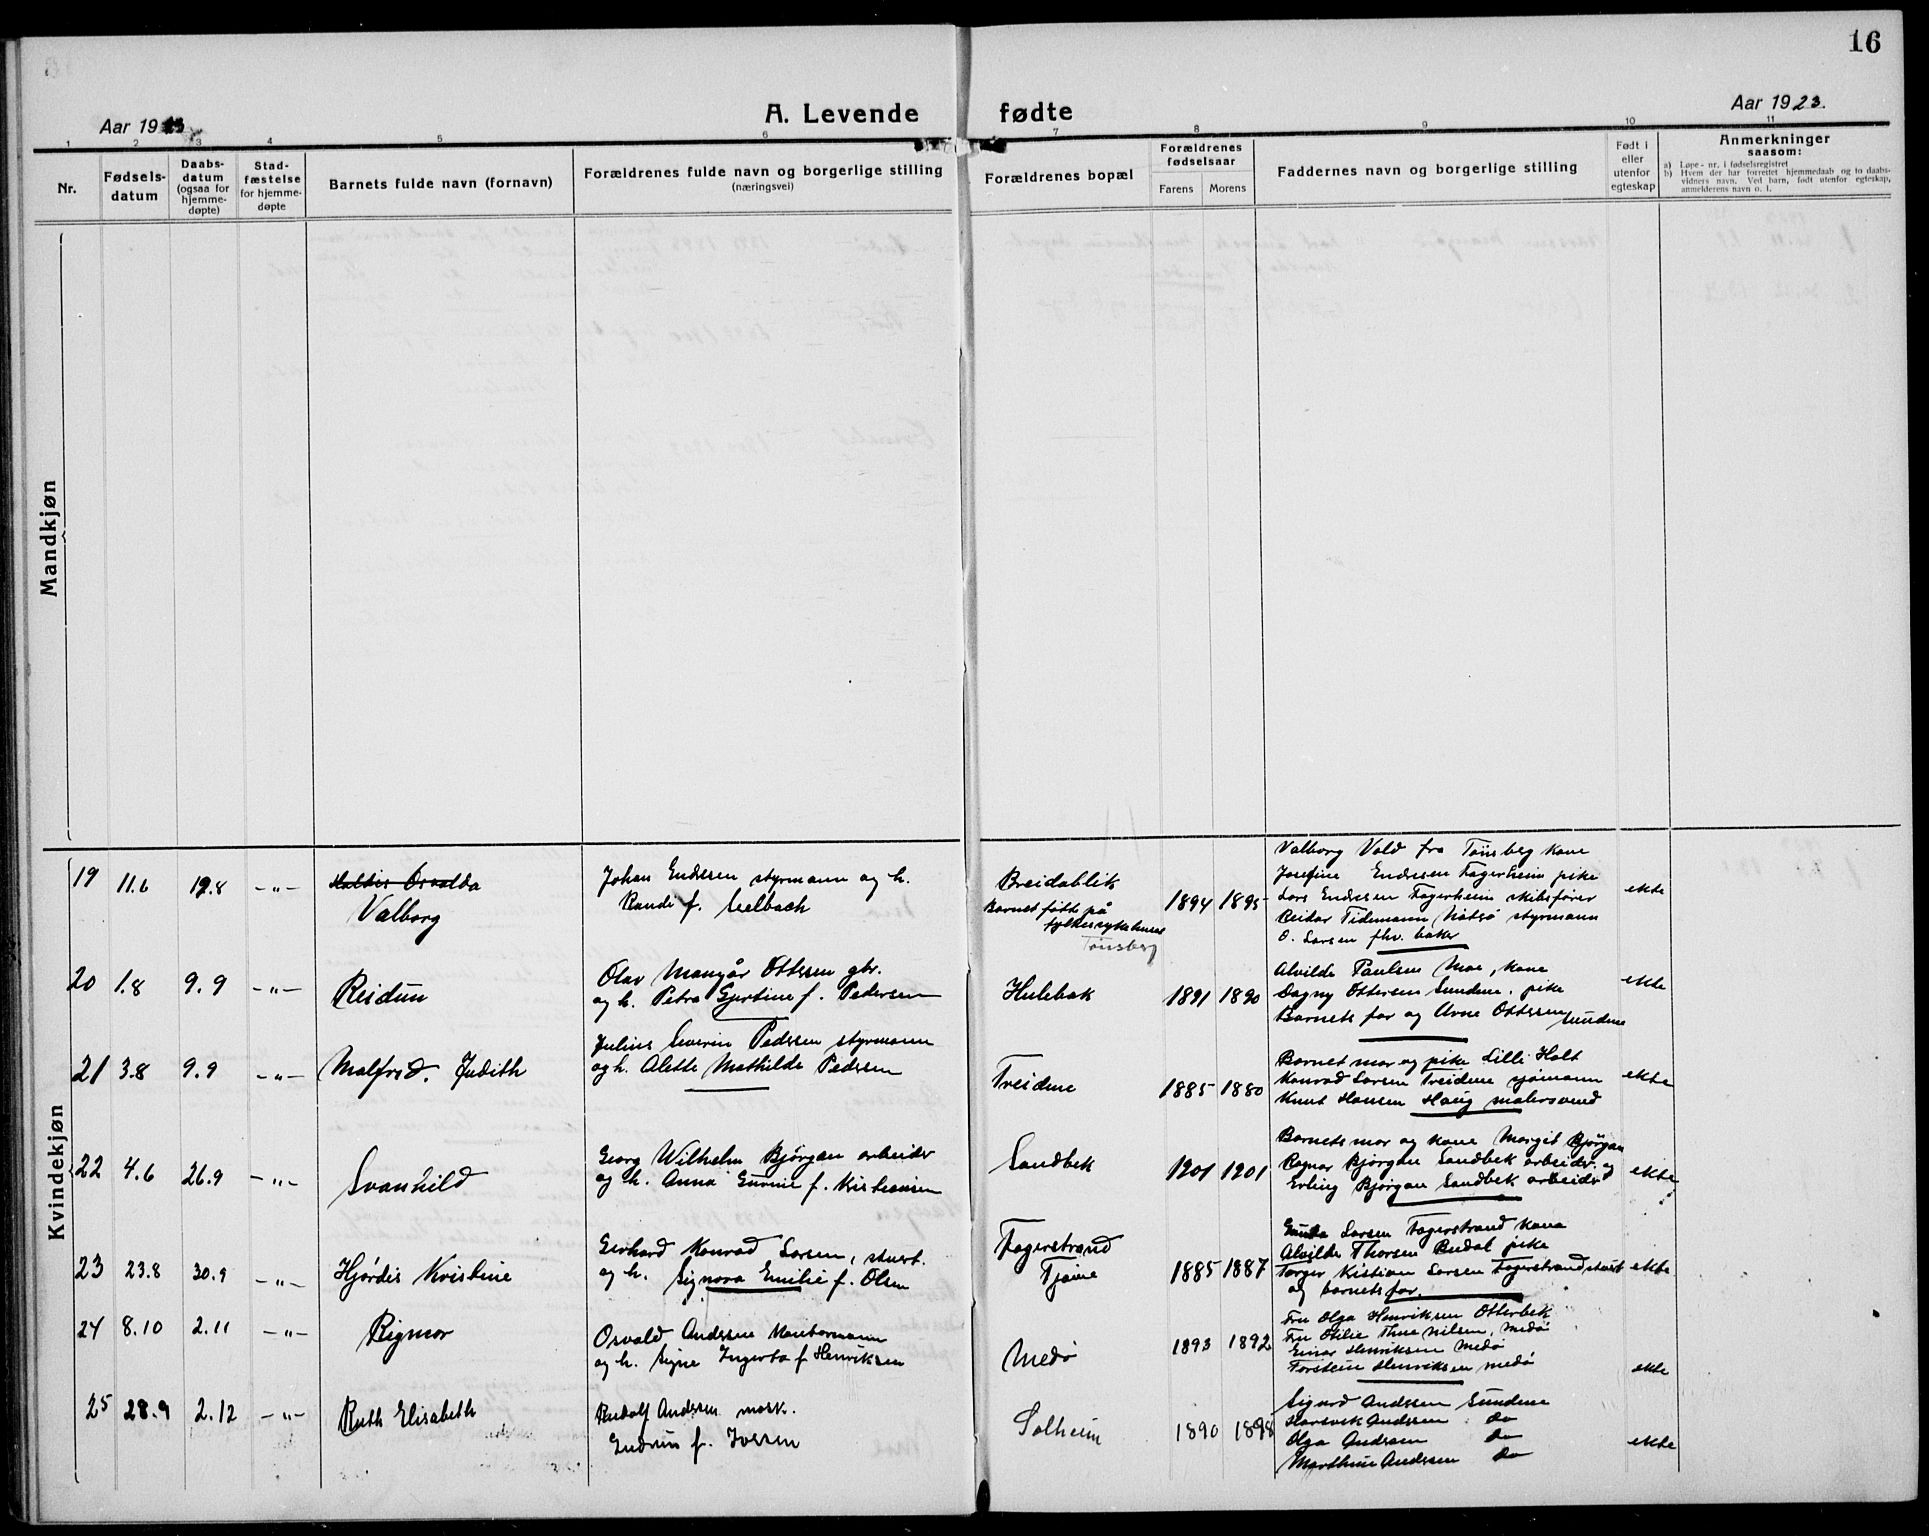 16
Aar 1923
A. Levende fødte
Aar 1923.
1 2 3 4 5 6 7 8 9 10 11
Nr.
Fødsels-
datum
Daabs-
datum
(ogsaa for
hjemme-
døpte)
Stad-
fæstelse
for hjemme-
døpte
Barnets fulde navn (fornavn)
Forældrenes fulde navn og borgerlige stilling
(næringsvei)
Forældrenes bopæl
Forældrenes
fødselsaar
Farens Morens
Faddernes navn og borgerlige stilling
Født i
eller
utenfor
egteskap
Anmerkninger
saasom:
a) Løpe-nr. i fødselsregistret
b) Hvem der har forrettet hjemmedaab og to daabs-
vidners navn. Ved barn, født utenfor egteskap,
anmelderens navn o. l.
Mandkjøn
Kvindekjøn
19 11.6 19.8 -"- Osvalda
Valborg
Johan Endresen styrmann og h.
Randi f. Seelbach
Breidablik
Barnet født på
fylkessykehuset
Tønsberg
1894 1895
Valborg Vold fra Tønsberg kone
Josefine Endresen Fagerheim pike
Lars Endresen Fagerheim skibsfører
Reidar Tidemann Natsø styrmann
O. Larsen fhv. baker
ekte
20 1.8 9.9 -"- Reidun
Olav Mangår Ottersen gbr.
og h. Petra Gjertine f. Pedersen
Hulebak
1891 1890
Alvilde Paulsen Moe, kone
Dagny Ottersen Sundene, pike
Barnets far og Arne Ottersen Sundene
ekte
21 3.8 9.9 -"- Malfrid. Judith
Julius Severin Pedersen styrmann
og h. Alette Mathilde Pedersen
Treidene
1885 1880
Barnet mor og pike Lilli Holt
Konrad Larsen Treidene sjømann
Knut Hansen Haug malersvend
ekte
22 4.6 26.9 -"- Svanhild
Georg Wilhelm Bjørgan arbeider
og h. Anna f. Kristiansen
Sandbek
1901 1901
Barnets mor og kone Margit Bjørgan
Ragnar Bjørgan Sandbek arbeider og
Erling Bjørgan Sandbek arbeider
ekte
23 23.8 30.9 -"- Hjørdis Kristine
Gerhard Konrad Larsen, stuert.
og h. Signora Emilie f. Olsen
Fagerstrand
Tjøme
1885 1887
Larsen Fagerstrand kone
Alvilde Thorsen Budal pike
Torger Kristian Larsen Fagerstrand stuert
og barnets far.
ekte
24 8.10 2.11 -"- Rigmor
Osvald Andersen
og h. Signe Ingerta f. Henriksen
Medø
1893 1892
Fru Olga Henriksen Otterbek
Fru Otilie Thue Nilsen, Medø
Einar Henriksen Medø
Torstein Henriksen Medø
ekte
25 28.9 2.12 -"- Ruth Elisabeth
Rudolf Andersen mask.
Gudrun f. Iversen
Solheim
1890 1898
Sigurd Andersen Sundene
Andersen do
Olga Andersen do
Marthine Andersen do
ekte